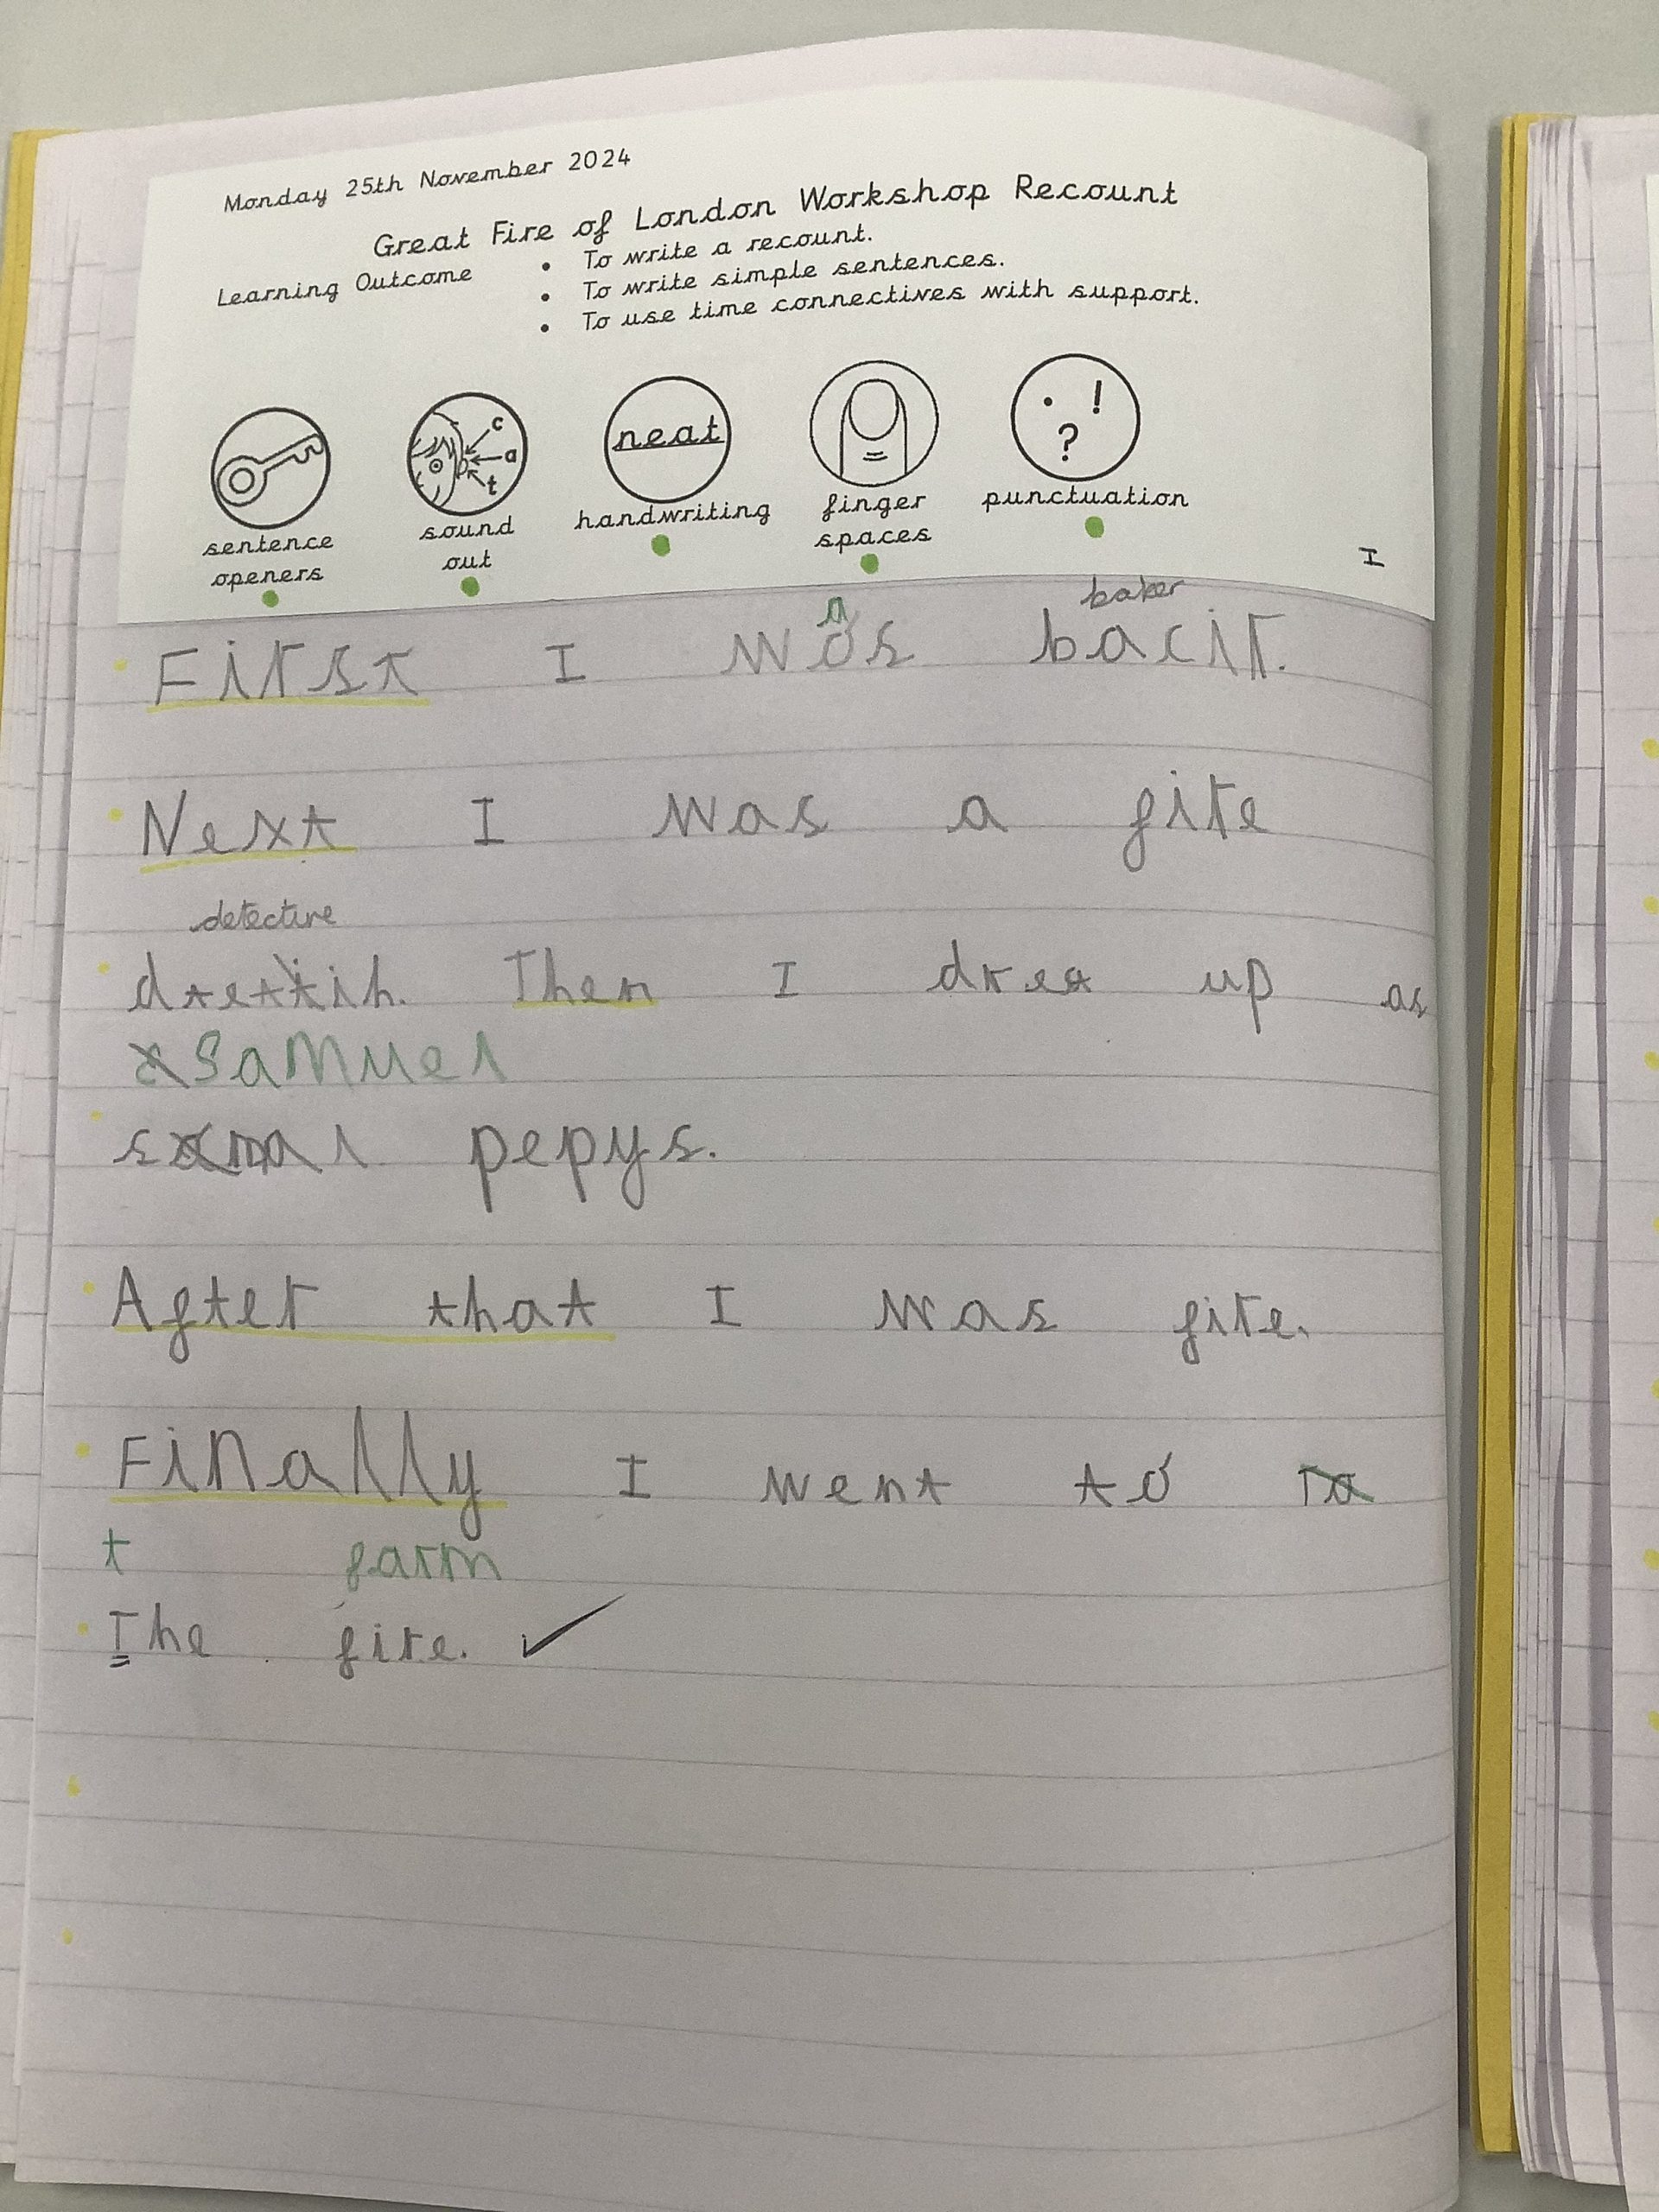 Monday 25th November 2024
Great Fire of London Workshop Recount
Learning Outcome
• To write a recount.
• To write simple sentences.
• To use time connectives with support.
c
a
t
neat
. !
?
sentence openers
sound out
handwriting
finger spaces
punctuation
I
baker
a
First I wos bacir.
Next I was a fire
detective
Then I dres up as
Samuel
pepys.
After that I was fire.
Finally I went to
t farm
The fire.